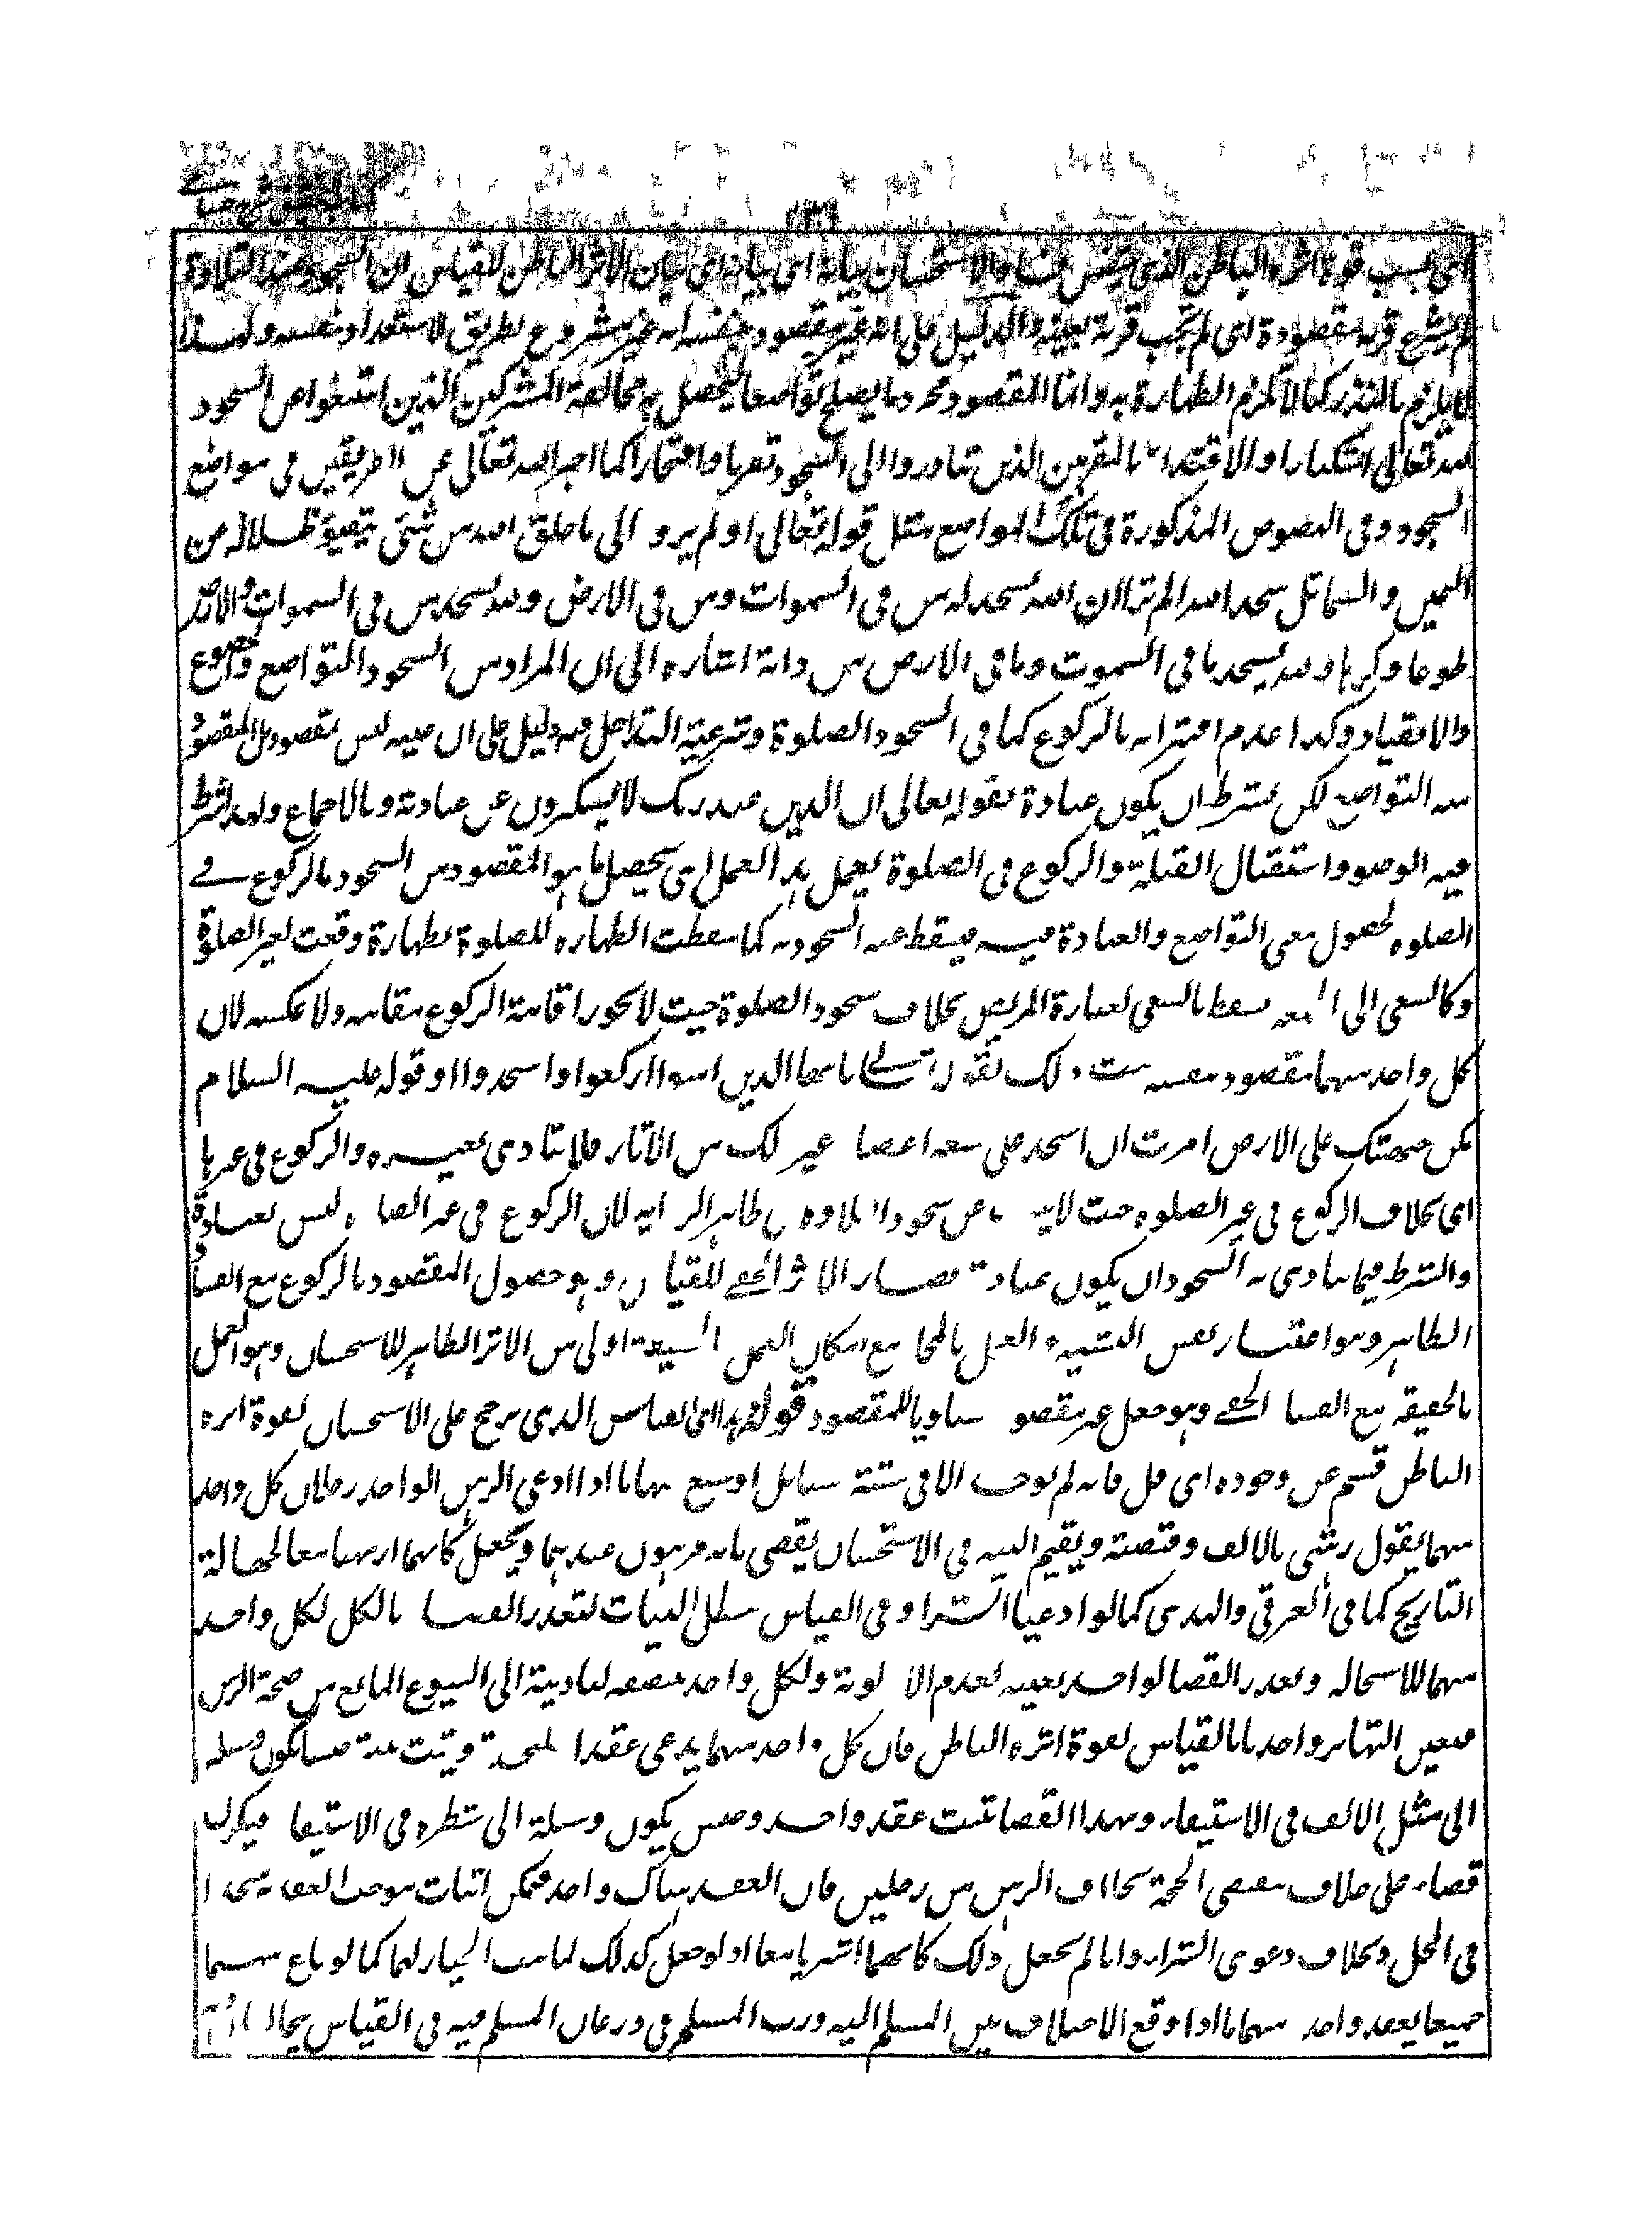 اى بسبب قوة اثره الباطن الذى فساد الاستحسان بيانه اى بيان الاثر الباطن للقياس ان السجود عند التلاوة
لم يشرع قربة مقصودة اى لم تجب قربة بعينه والدليل على انه غير مقصود بنفسه انه غير مشروع بطريق الاستقلال بنفسه ولهذا
لا يلزم بالنذر كما لا تلزم الطهارة به وانما المقصود مجرد ما يصلح تواضعا ليحصل به مخالفة المشركين الذين امتنعوا من السجود
لله تعالى استكبارا والاقتداء بالمقربين الذين تبادروا الى السجود تقربا وافتخارا كما اخبر الله تعالى عن الفريقين فى مواضع
السجود وفى النصوص المذكورة فى تلك المواضع مثل قوله تعالى او لم يروا الى ما خلق الله من شئى يتفيؤ ظلاله عن
اليمين والشمائل سجدا لله الم تر ان الله يسجد له من فى السموات ومن فى الارض ولله يسجد من فى السموات والارض
طوعا وكرها ولله يسجد ما فى السموت وما فى الارض من دابة اشاره الى ان المراد من السجود التواضع والخضوع
والانقياد وكذا عدم اقترانه بالركوع كما فى السجود الصلوة وشرعية التداخل فيه دليل على ان عينه ليس بمقصود بل المقصود
منه التواضع لكن بشرط ان يكون عبادة بقوله تعالى ان الذين عند ربك لا يستكبرون عن عبادته وبالاجماع ولهذا شرط
فيه الوضو واستقبال القبلة والركوع فى الصلوة يعمل هذا العمل اى يحصل ما هو المقصود من السجود بالركوع فے
الصلوه لحصول معنى التواضع والعبادة فيه فيسقط عنه السجود به كما سقطت الطهاره للصلوة بطهارة وقعت لغير الصلوة
وكالسعى الى الجمعه سقط بالسعى لعيادة المريض بخلاف سجود الصلوة حيث لا يجوز اقامة الركوع مقامه ولا عكسه لان
كل واحد منهما مقصود بنفسه ثبت ذلك بقوله تعالے يا ايها الذين امنوا اركعوا واسجدوا وقوله عليه السلام
مكن جبهتك على الارض امرت ان اسجد على سبعه اعضا غير ذلك من الاثار فلا يتادى بغيره والركوع فى غيرها
اى بخلاف الركوع فى غير الصلوه حيث لا ينوب عن سجود التلاوه فى ظاهر الروايه لان الركوع فى غير الصلوة ليس بعبادة
والشرط فيما يتادى به السجود ان يكون عبادة فصار الاثر الخفے للقياس وهو حصول المقصود بالركوع مع الفساد
الظاهر وهو اعتبار نفس الشبه والعمل بالمجاز مع امكان العمل بالحقيقة اولى من الاثر الظاهر للاستحسان وهو العمل
بالحقيقه مع الفساد الخفے وهو جعل غير مقصود مساويا للمقصود قوله فهذا اى القياس الذى ترجح على الاستحسان لقوة اثره
الباطن قسم عز وجوده اى قل فانه لم يوجد الا فى ستة مسائل او سبع منها ما اذا ادعى الرهن الواحد رجلان كل واحد
منهما يقول رهننى بالالف وقبضته ويقيم البينه فى الاستحسان يقضى بانه مرهون عندهما ويجعل كانهما ارتهنا معا لجهالة
التاريخ كما فى الغرقى والهدمى كما لو ادعيا الشراء وفى القياس تبطل البينات لتعذر القضا بالكل لكل واحد
منهما للاستحاله وتعذر القضا لواحد بعينه لعدم الاولوية ولكل واحد بنصفه لتاديته الى الشيوع المانع من صحة الرهن
فتعين التهاتر واخذنا بالقياس لقوة اثره الباطن فان كل واحد منهما يدعى عقدا على حدة ويثبت حبسا يكون وسيلة
الى مثل الالف فى الاستيفاء وبهذا القضا تثبت عقد واحد وحبس يكون وسيلة الى شطره فى الاستيفا فيكون
قضاء على خلاف مقتضى الحجة بخلاف الرهن من رجلين فان العقد هناك واحد فيمكن اثبات موجب العقد متحدا
فى المحل وبخلاف دعوى الشراء وانا لم نجعل ذلك كانهما اشتريا معا اذ لو جعل كذلك لما ثبت الخيار لهما كما لو باع منهما
جميعا بعقد واحد منهما ما اذا وقع الاختلاف بين المسلم اليه ورب المسلم فى درعان المسلم فيه فى القياس